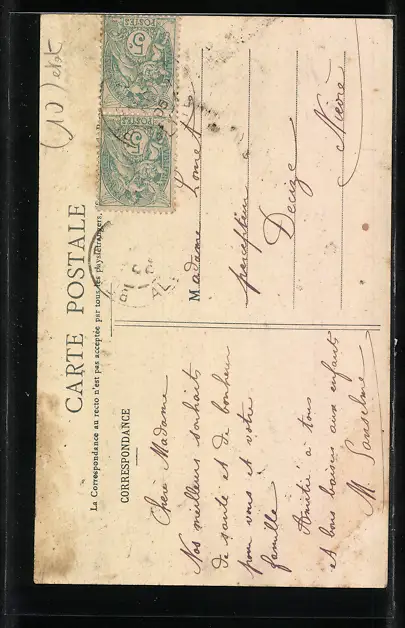 (10) état
CARTE POSTALE
La Correspondance au recto n'est pas acceptée par tous les pays étrangers.
CORRESPONDANCE
Chère Madame
Nos meilleurs souhaits
de santé et de bonheur
pour vous et votre
famille
Amitié à tous
et bons baisers aux enfants
M.
POSTES 5
POSTES 5
Madame Lomet
percepteur à
Decize
Nièvre